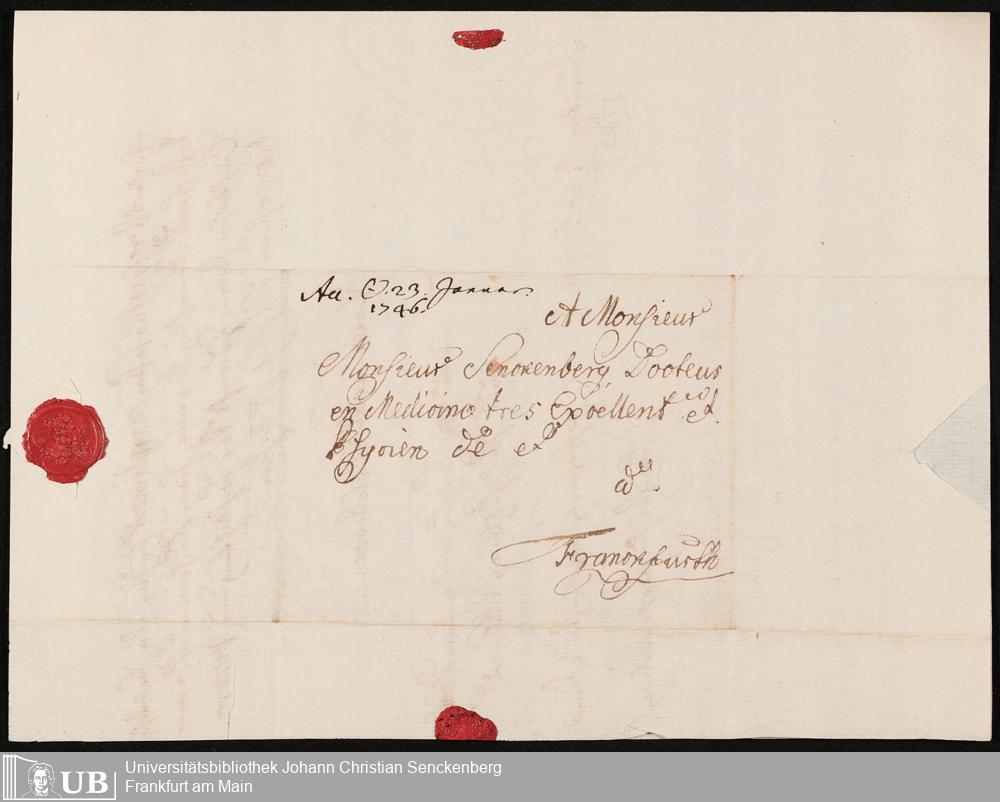 Acc. ☉. 23. Januar.
1746.
A Monsieur
Monsieur Senckenberg Docteur
en Medicine tres Excellent et
Phycien de et
Franckfurth
UB
Universitätsbibliothek Johann Christian Senckenberg
Frankfurt am Main